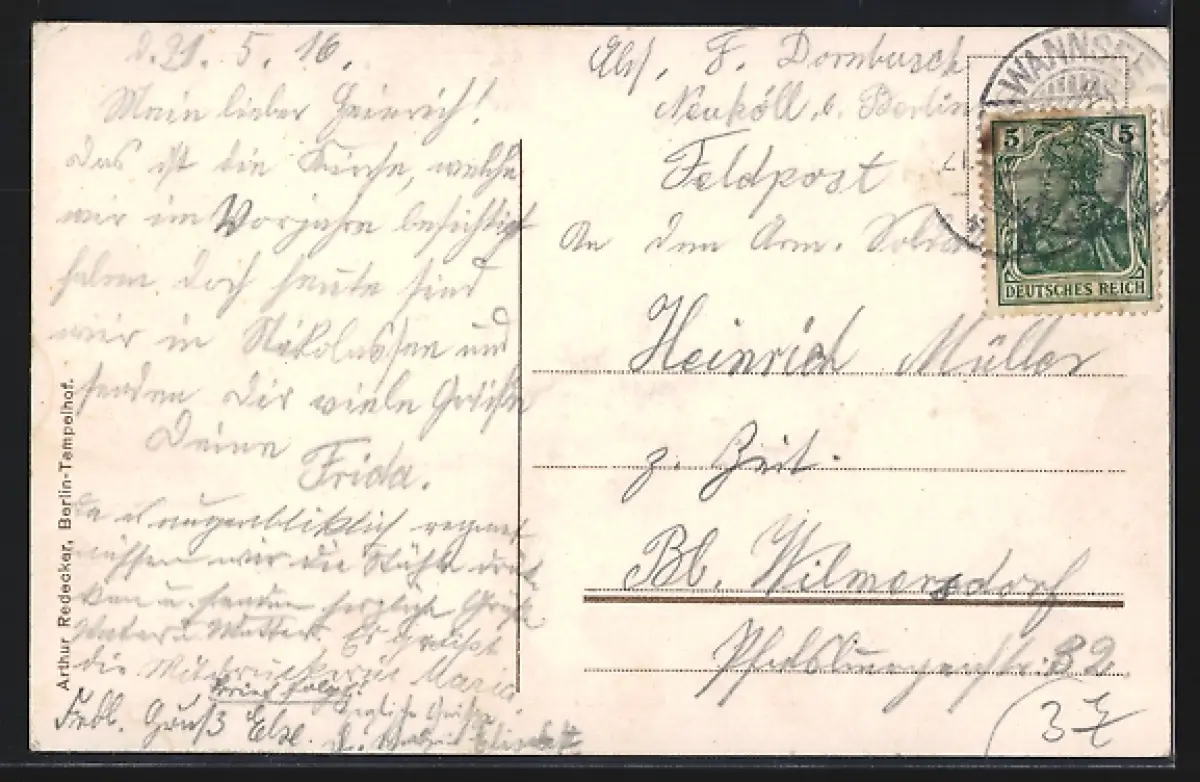 d. 21. 5. 16.
Mein lieber Heinrich!
Das ist die Kirche, welche
wir im Vorjahre besichtigt
haben doch heute sind
wir in Nikolassee und
senden Dir viele Grüße
Deine
Frida.
Da es augenblicklich regnet
müssen wir die Stühle
u. senden herzliche Grüße
Vater u Mutter. Es grüßt
die Maria
Brief folgt.
Frdl. Gruß Else.
Elisabeth
Abs. F. Dornbusch
Neuköll. b. Berlin
Feldpost
An den Arm. Soldat
Heinrich Müller
z. Zeit.
Bl. Wilmersdorf
Pfalzburgerstr. 82
3
WANNSEE
5 5
DEUTSCHES REICH
Arthur Redecker, Berlin-Tempelhof.